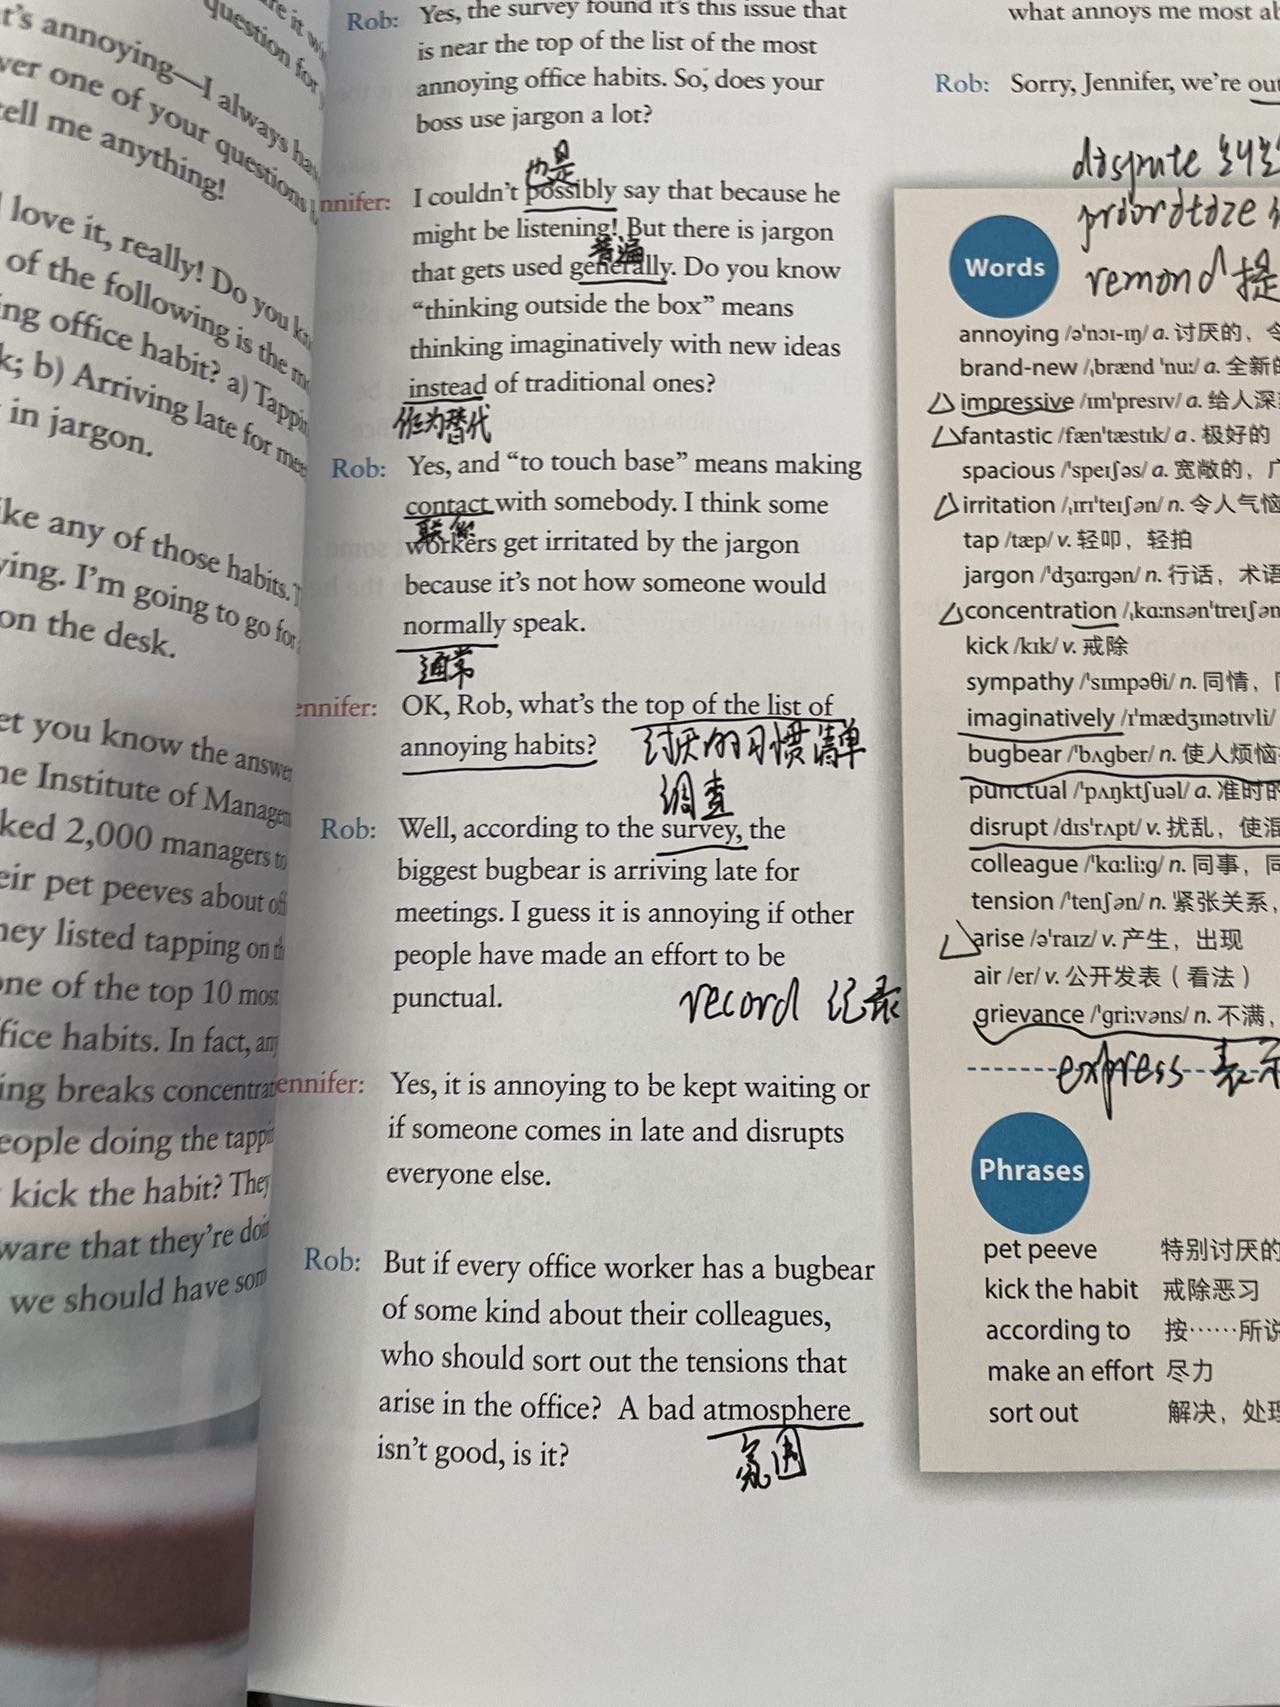 t's annoying—I always
question for
ver one of your questions
tell me anything!
love it, really! Do you
of the following is the
ing office habit? a)
b) Arriving late for
in jargon.
ike any of those habits.
ying. I'm going to go for
on the desk.
et you know the answer
he Institute of
ked 2,000 managers to
eir pet peeves about
hey listed tapping on
one of the top 10 most
fice habits. In fact,
ing breaks
eople doing the
kick the habit? They
ware that they're
we should have
Rob: Yes, the survey found it's this issue that
is near the top of the list of the most
annoying office habits. So, does your
boss use jargon a lot?
也是
nnifer: I couldn't possibly say that because he
might be listening! But there is jargon
普遍
that gets used generally. Do you know
“thinking outside the box” means
thinking imaginatively with new ideas
instead of traditional ones?
作为替代
Rob: Yes, and “to touch base” means making
contact with somebody. I think some
联系
workers get irritated by the jargon
because it's not how someone would
normally speak.
通常
ennifer: OK, Rob, what's the top of the list of
annoying habits?
讨厌的习惯清单
调查
Rob: Well, according to the survey, the
biggest bugbear is arriving late for
meetings. I guess it is annoying if other
people have made an effort to be
punctual.
record 记录
ennifer: Yes, it is annoying to be kept waiting or
if someone comes in late and disrupts
everyone else.
Rob: But if every office worker has a bugbear
of some kind about their colleagues,
who should sort out the tensions that
arise in the office? A bad atmosphere
isn't good, is it?
氛围
what annoys me most
Rob: Sorry, Jennifer, we're out
Words
annoying /ə'nɔɪ-ɪŋ/ a. 讨厌的，令
brand-new /ˌbrænd 'nuː/ a. 全新的
impressive /ɪm'presɪv/ a. 给人深
fantastic /fæn'tæstɪk/ a. 极好的
spacious /'speɪʃəs/ a. 宽敞的，广
irritation /ˌɪrɪ'teɪʃən/ n. 令人气恼
tap /tæp/ v. 轻叩，轻拍
jargon /'dʒɑːrgən/ n. 行话，术语
concentration /ˌkɑːnsən'treɪʃən
kick /kɪk/ v. 戒除
sympathy /'sɪmpəθi/ n. 同情，
imaginatively /ɪ'mædʒɪnətɪvli/
bugbear /'bʌgber/ n. 使人烦恼
punctual /'pʌŋktʃuəl/ a. 准时的
disrupt /dɪs'rʌpt/ v. 扰乱，使混
colleague /'kɑːliːg/ n. 同事，同
tension /'tenʃən/ n. 紧张关系，
arise /ə'raɪz/ v. 产生，出现
air /er/ v. 公开发表（看法）
grievance /'griːvəns/ n. 不满，
express 表示
Phrases
pet peeve 特别讨厌的
kick the habit 戒除恶习
according to 按……所说
make an effort 尽力
sort out 解决，处理